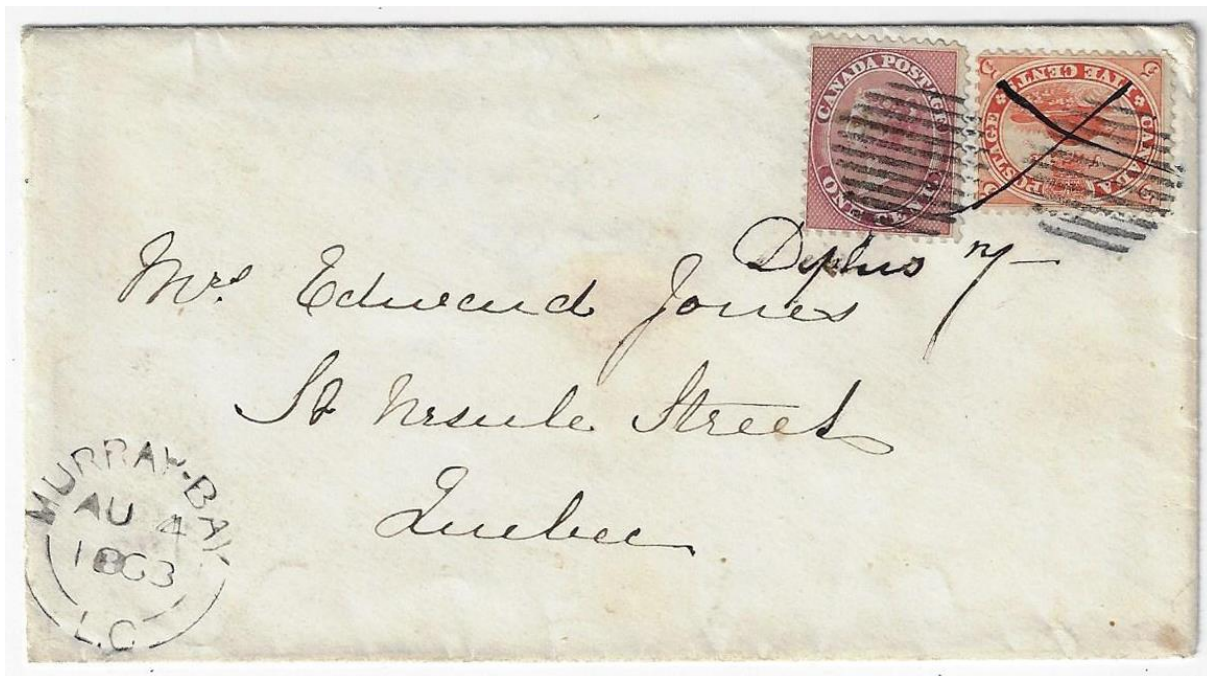 CANADA POSTAGE
ONE CENT
CANADA POSTAGE
FIVE CENTS
5
Mrs Edward Jones
St Ursule Street
Quebec
MURRAY-BAY
AU 4
1863
L.C